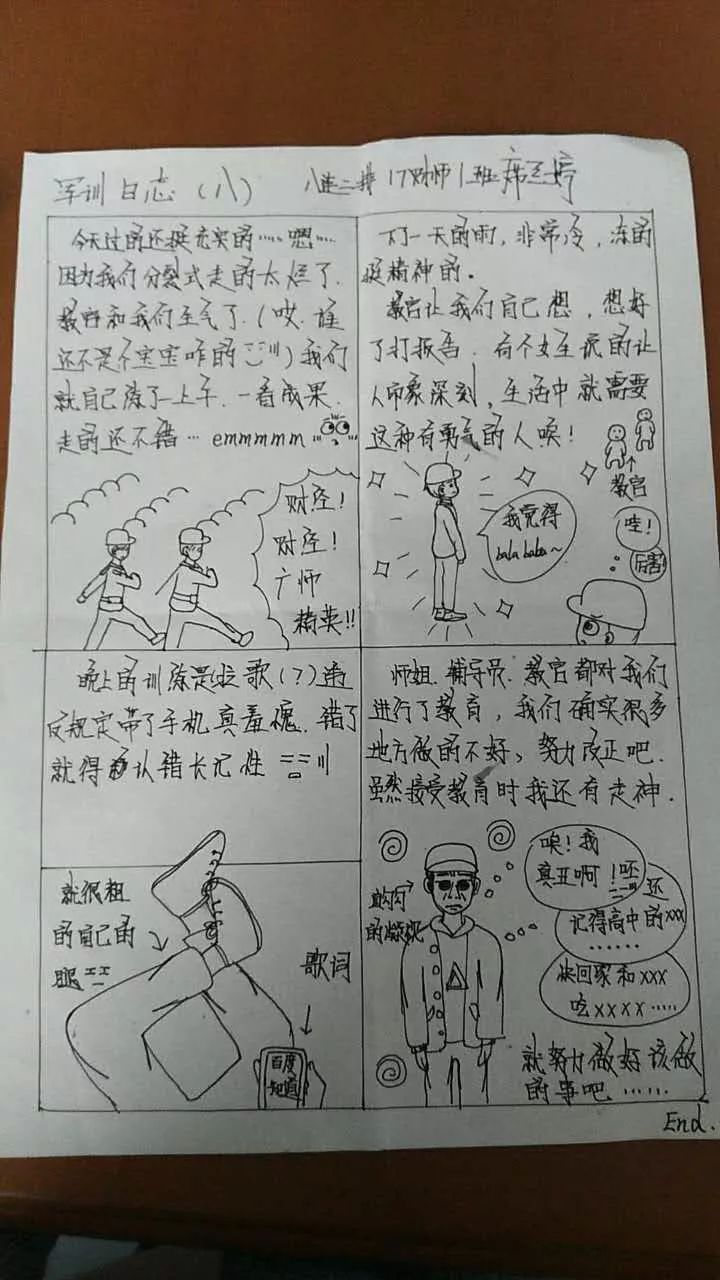 军训日志（八）
八连二排 17财师1班
今天过的还挺充实的……嗯……
因为我们分裂式走的太烂了.
教官和我们生气了.（哎.谁
还不是个宝宝咋的）我们
就自己练了一上午.一看成果.
走的还不错… emmmmm
财经！
财经！
广师
精英!!
下了一天的雨，非常冷，冻的
挺精神的。
教官让我们自己想，想好
了打报告.有个女生说的让
人印象深刻，生活中就需要
这种有勇气的人唉！
教官
我觉得
bala bala~
哇！
厉害
晚上的训练是拉歌(？)违
反规定带了手机真羞愧.错了
就得承认错长记性
就很粗
的自己的
腿
歌词
百度
知道
师姐.辅导员.教官都对我们
进行了教育，我们确实很多
地方做的不好、努力改正吧.
虽然接受教育时我还有走神.
唉！我
真丑啊！
还
记得高中的xxx
……
快回家和xxx
吃xxxx……
就努力做好该做
的事吧……
End.